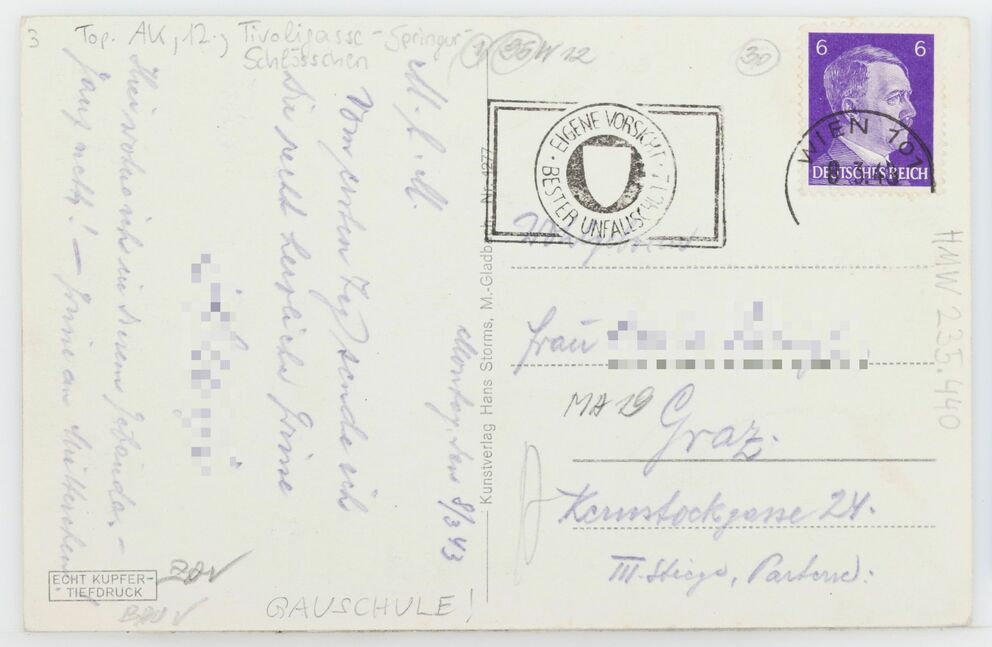 3 Top. AK, 12., Tivoligasse - Springer-
Schlösschen
M. l. M.
Vom ersten Tag sende ich
Dir recht herzliche Grüsse
Hier wohne ich in diesem Gebäude. -
Ganz nett! - Grüsse an
Montag, den 8/3 43
ECHT KUPFER-
TIEFDRUCK
ZON
GAUSCHULE!
Kunstverlag Hans Storms, M.-Gladb
Nr. 1277
95W12
30
EIGENE VORSICHT
BESTER UNFALLSCHUTZ
6 6
DEUTSCHES REICH
WIEN 101
8.3.43
Frau
MA 29 Graz.
Kernstockgasse 24.
III. Stiege, Parterre.
HMW 235.440